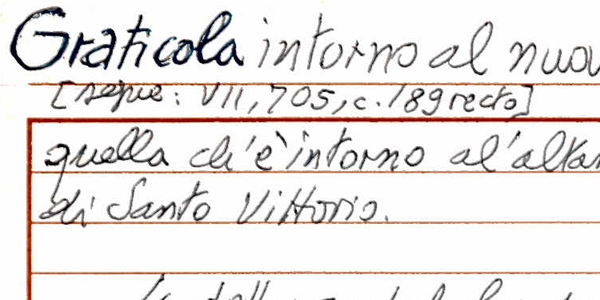 Graticola intorno al nuov
[segue: VII, 705, c. 189 recto]
quella ch'è intorno al'altar
di Santo Vittorio.